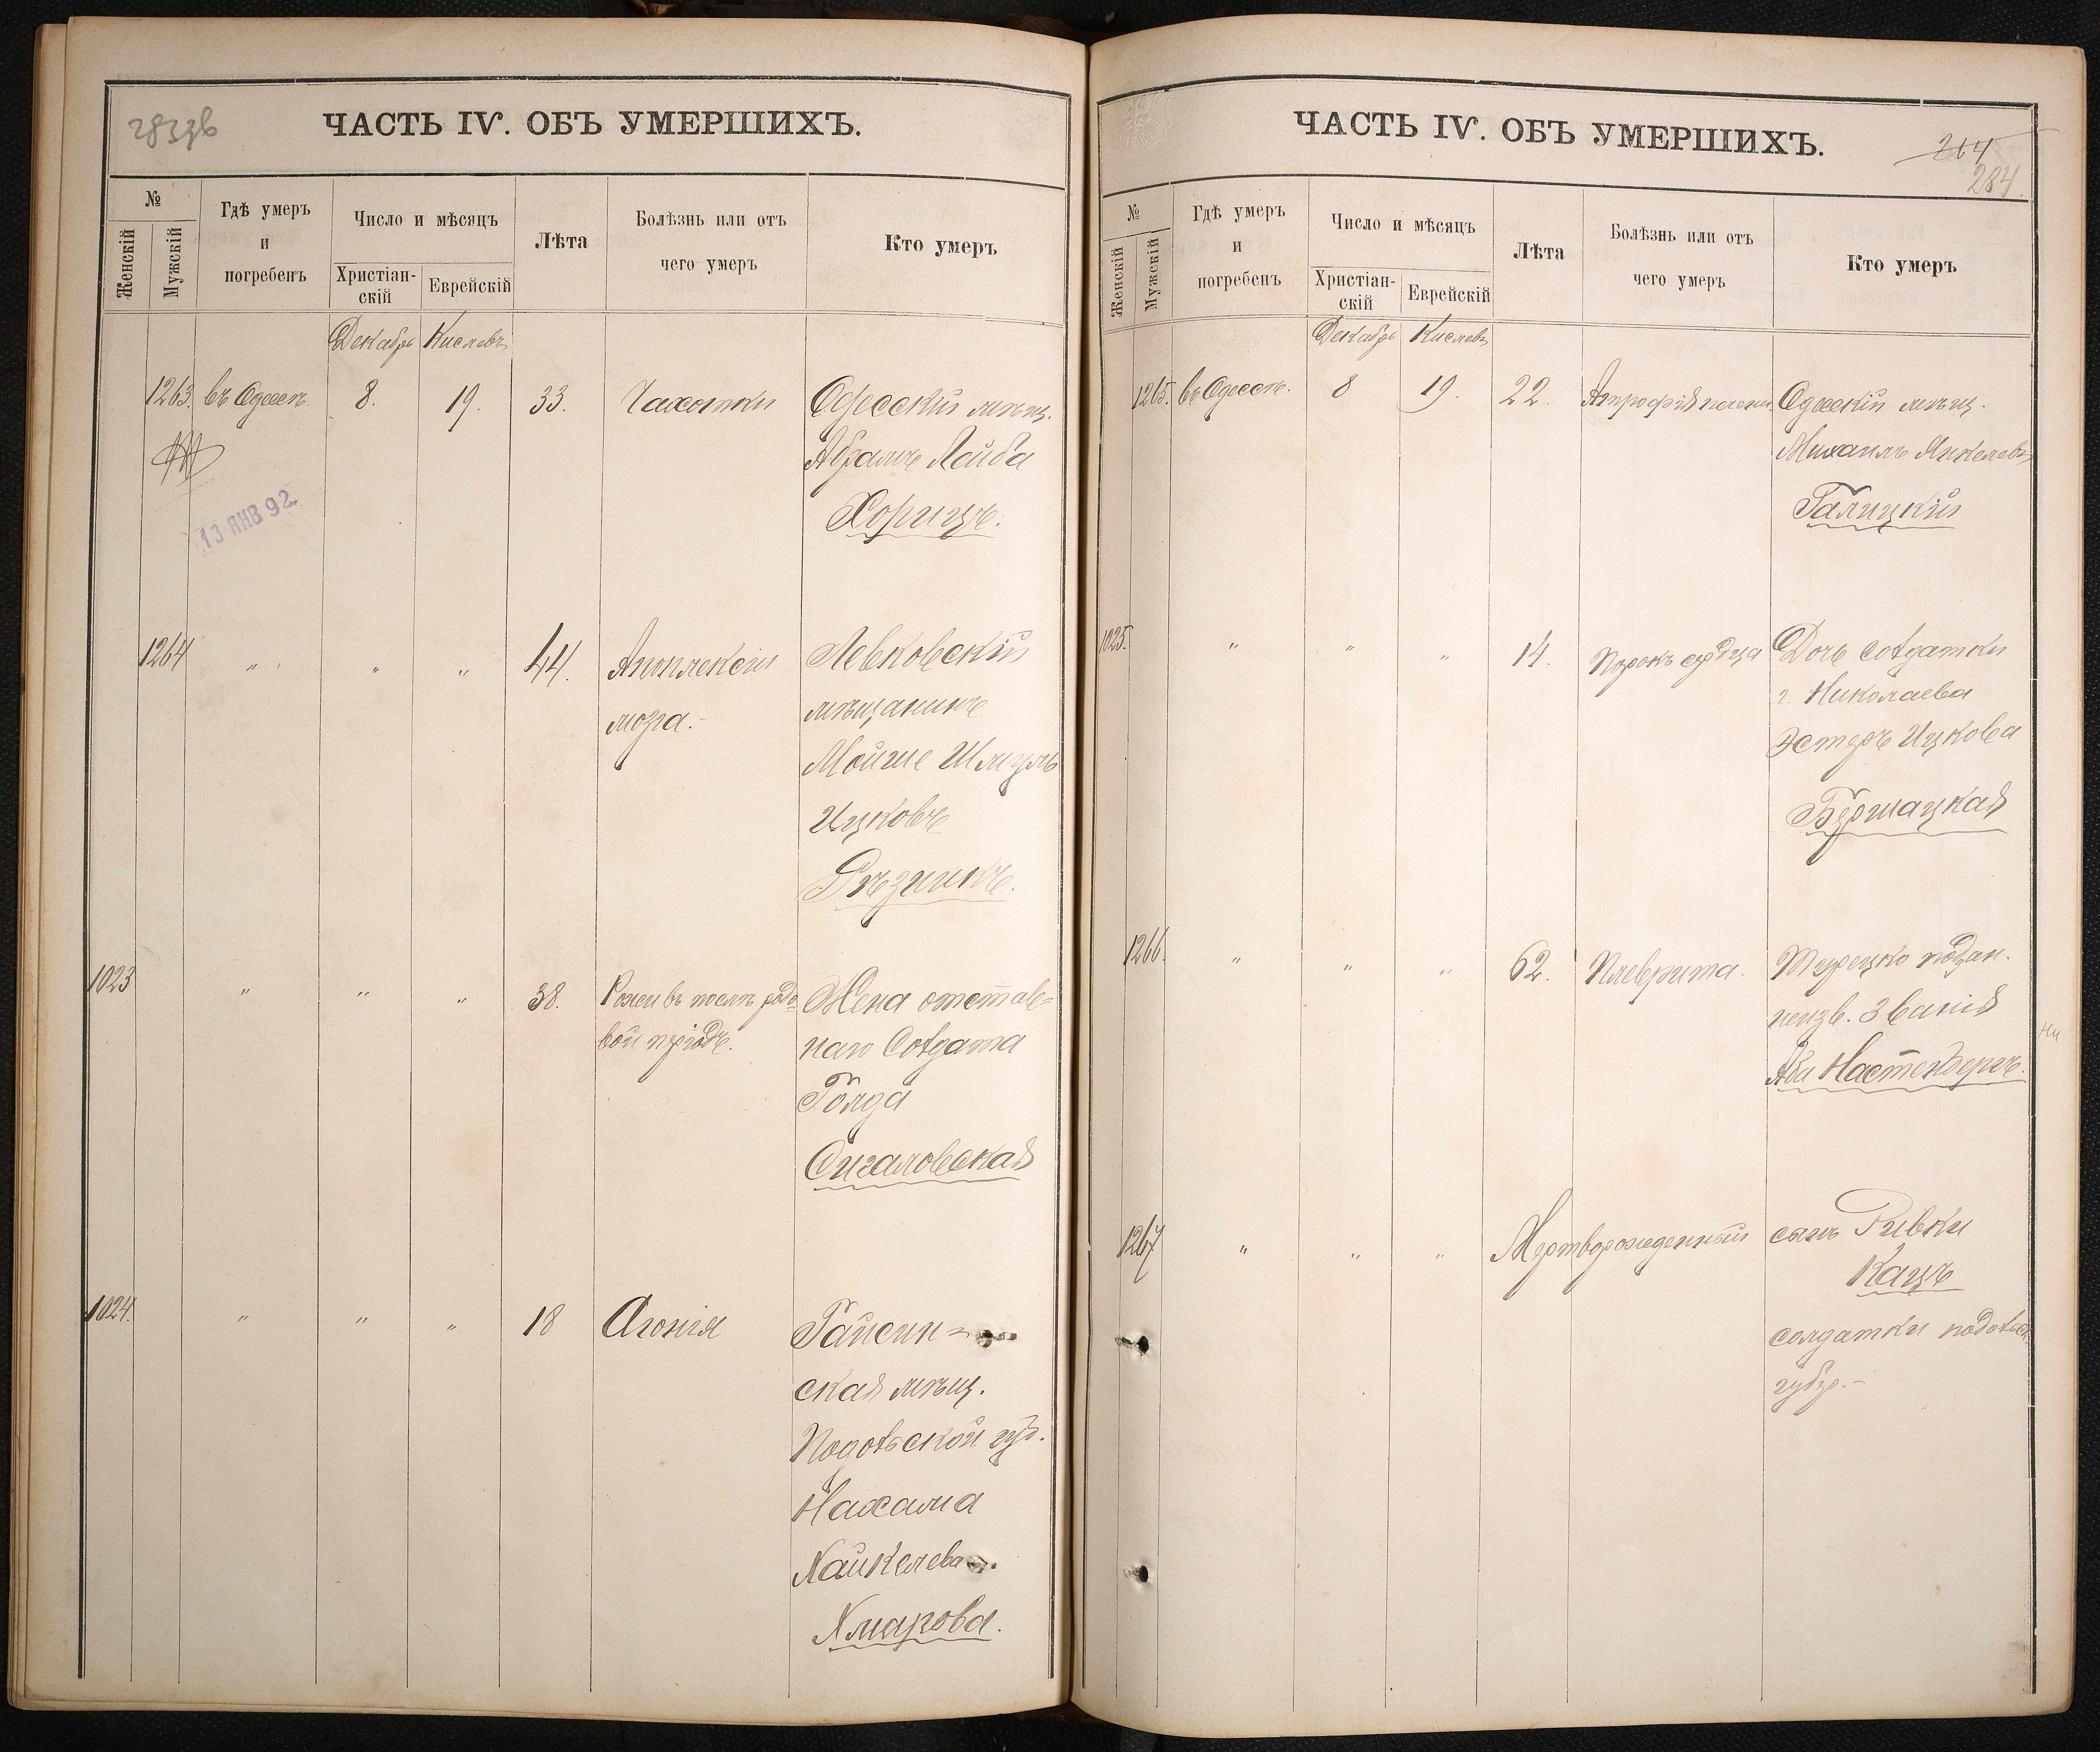 283зв
ЧАСТЬ IV. ОБЪ УМЕРШИХЪ.
№
Женскій
Мужскій
Гдѣ умеръ
и
погребенъ
Число и мѣсяцъ
Христіан-
скій
Еврейскій
Лѣта
Болѣзнь или отъ
чего умеръ
Кто умеръ
Декабрь Кислевъ
1263. въ Одессѣ 8. 19. 33. Чахотки Одесскій мѣщ.
Абрамъ Лейба
Хорицъ.
13 ЯНВ 92.
1264 " " " 44. Апоплексіи Левковскій
мозга.- мѣщанинъ
Мойше Шмуль
Ицковъ
Рѣзникъ.
1023 " " " 38. Рожи въ послѣ родо Жена отстав=
вой періодъ. наго Солдата
Голда
Сигаловская
1024. " " " 18 Агонія Гайсин=
ская мѣщ.
Подольской губ.
Нахама
Хайкелева
Хмарова.
ЧАСТЬ IV. ОБЪ УМЕРШИХЪ.
264
284.
№
Женскій
Мужскій
Гдѣ умеръ
и
погребенъ
Число и мѣсяцъ
Христіан-
скій
Еврейскій
Лѣта
Болѣзнь или отъ
чего умеръ
Кто умеръ
Декабрь Кислевъ
1265. въ Одессѣ. 8 19. 22. Атрофія печени. Одесскій мѣщ.
Михаилъ Янкелевъ
Галицкій
1025. " " " 14. Порокъ сердца Дочь солдатки
г. Николаева
Эстеръ Ицкова
Бершацкая
1266. " " " 62. Плеврита. Турецко поддан.
неизв. Званія
Аба Настенбергъ.
1267 " " " Мертворожденный сынъ Ривки
Кацъ
солдатки подольск
губер.-